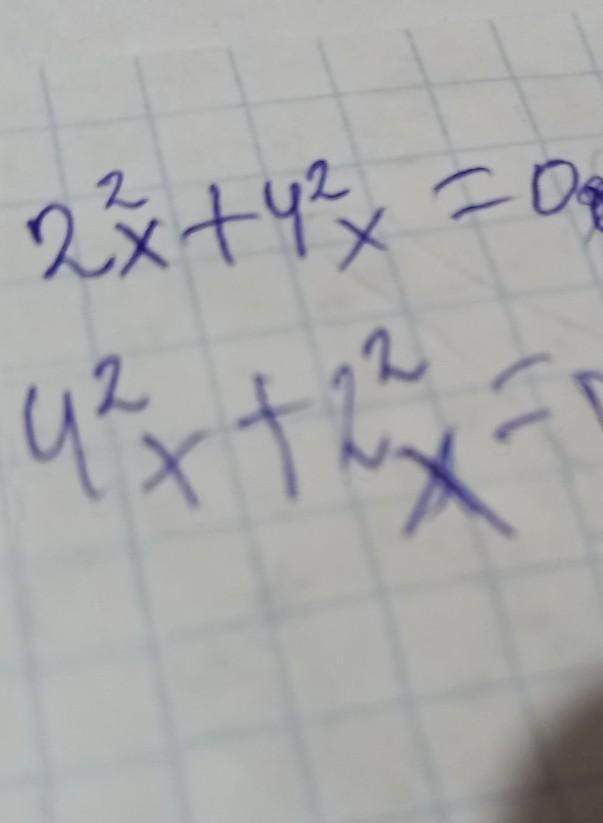 2²x + 4²x = 0
4²x + 2²x =